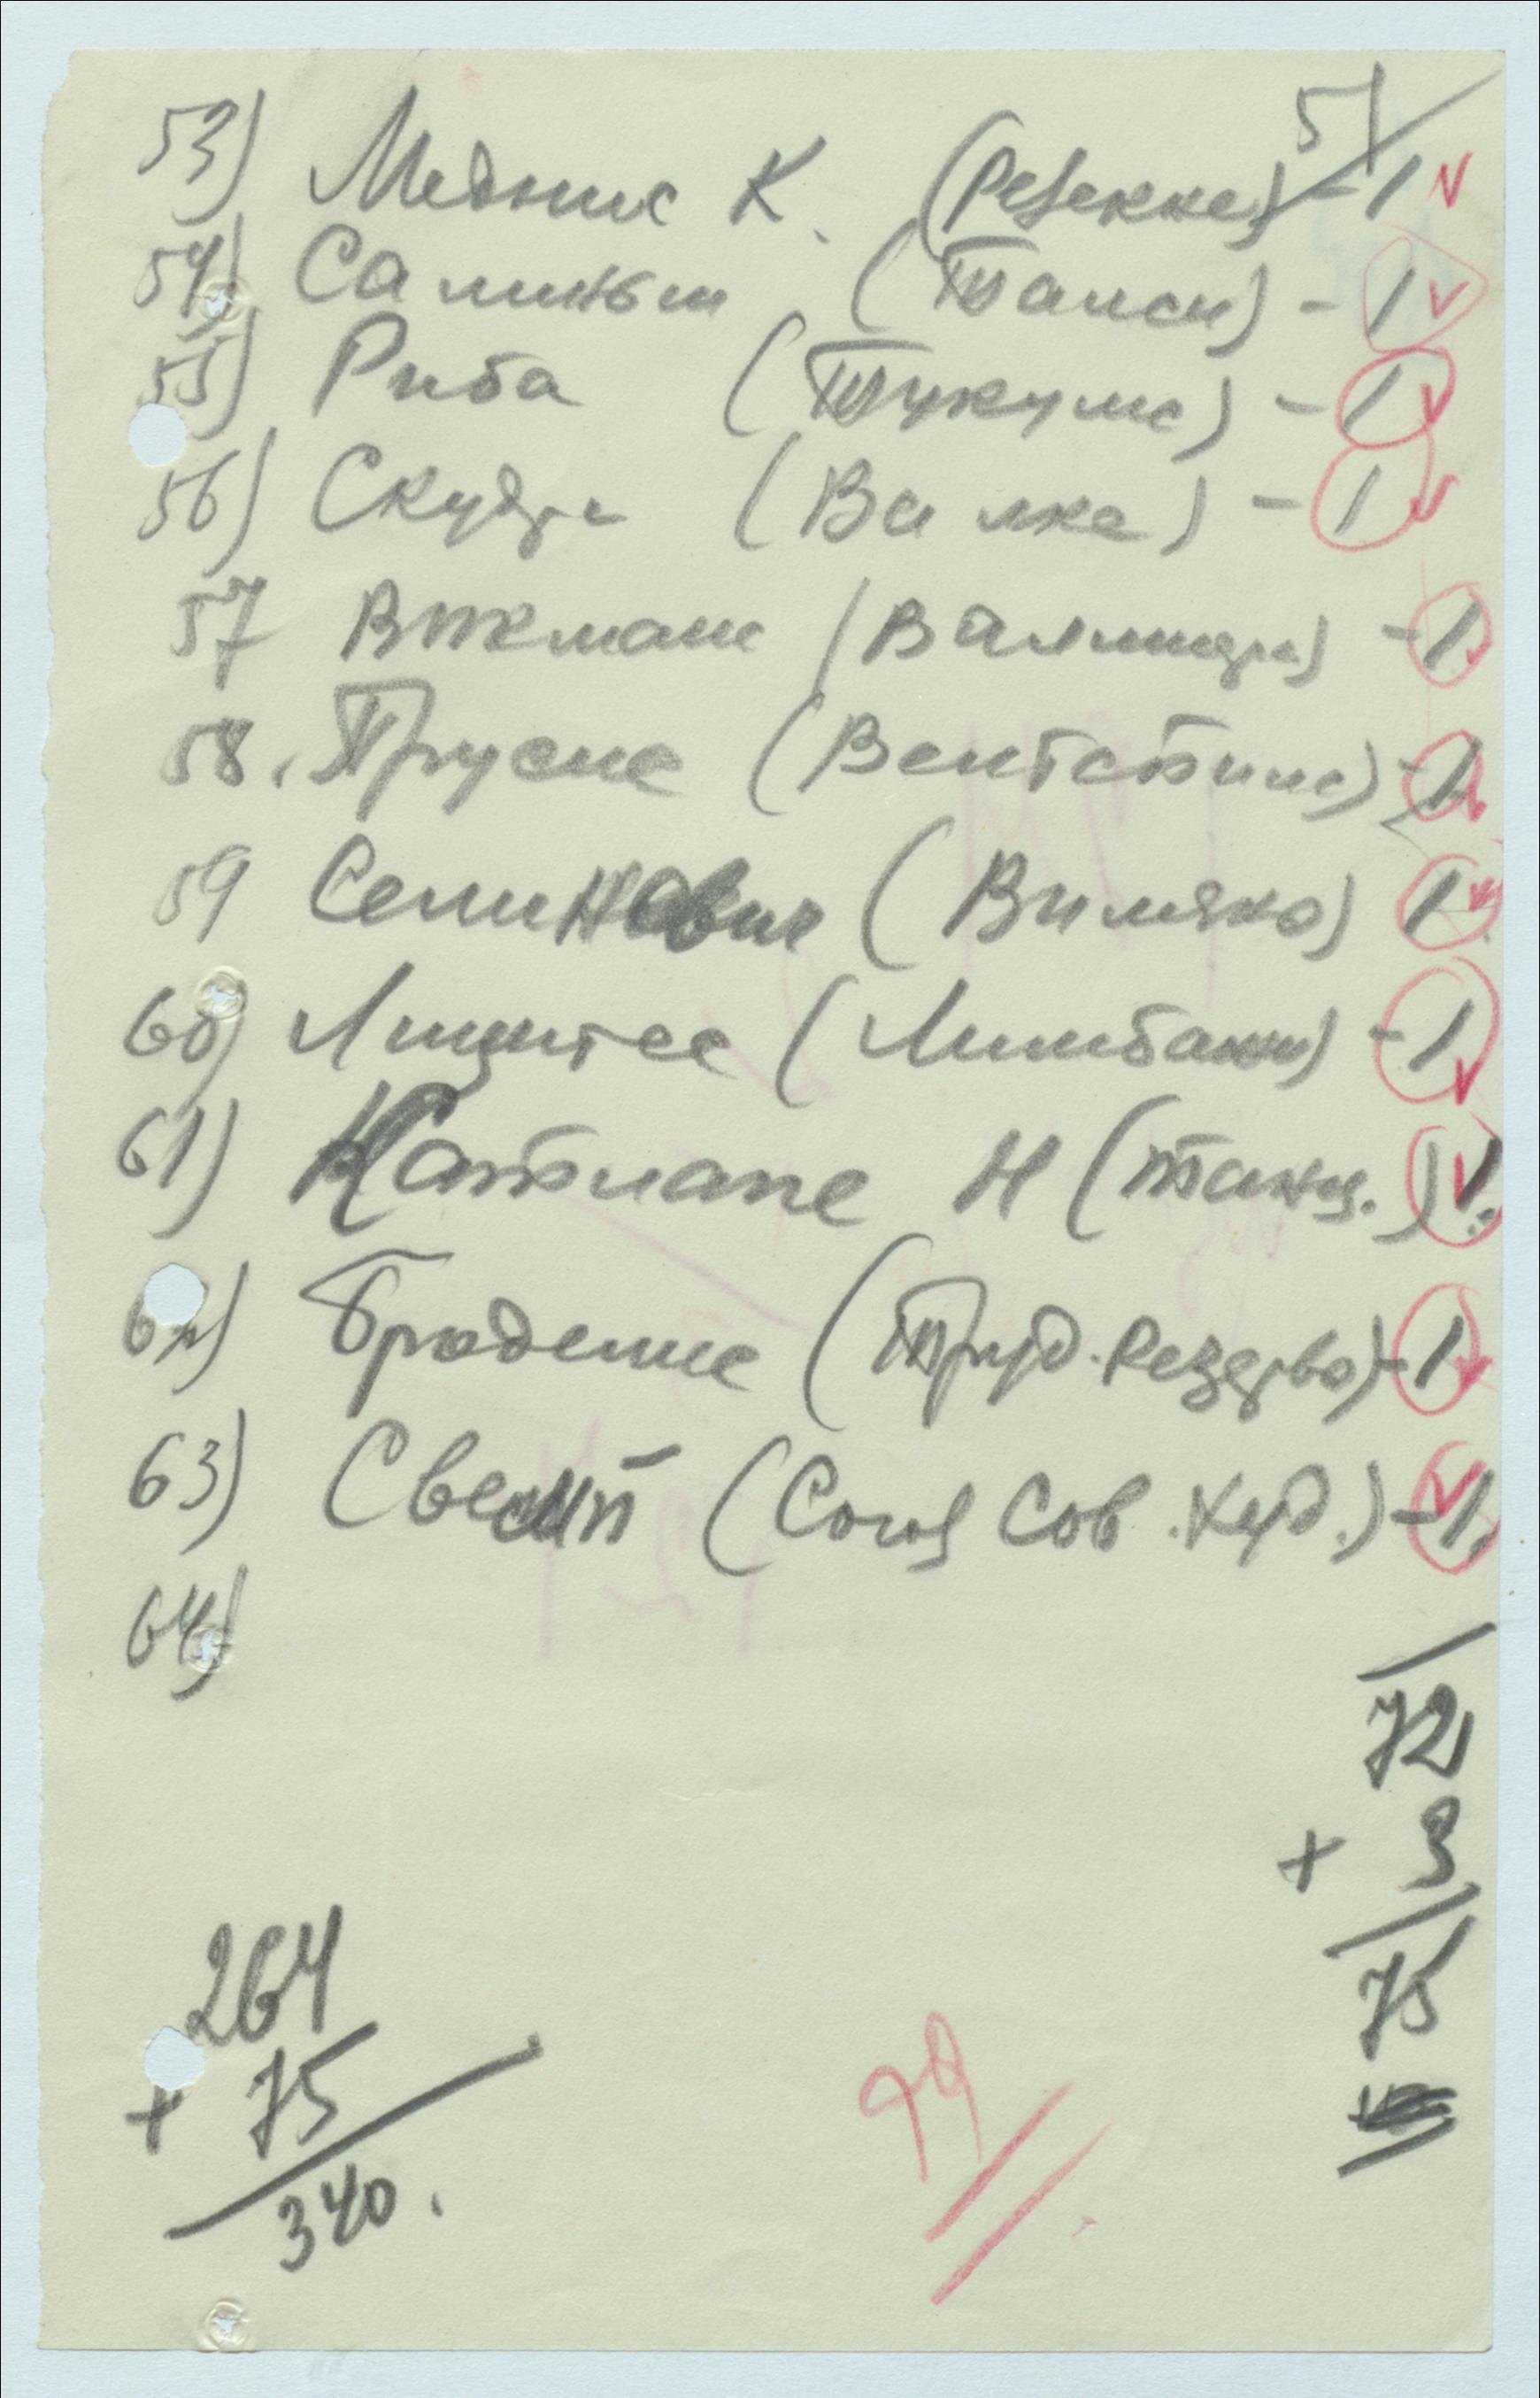 51
53) Медние К. (Резекне) - 1 v
54) Салиньш (Талси) - 1 v
55) Риба (Тукумс) - 1 v
56) Скудра (Валка) - 1 v
57 Викмане (Валмиера) - 1
58. Прусис (Вентспилс) - 1
59 (Виляка) 1 v
60) (Лимбажи) - 1 v
61) Катлапс Н (танц.) 1 v
62) (Труд. Резервы) - 1 v
63) (Союз Сов. Худ.) - 1 v
64)
72
+ 3
75
264
+ 75
340.
79